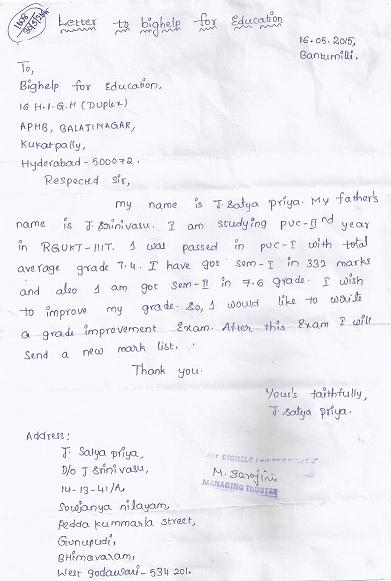 Letter to bighelp for Education
16-05-2015,
Bantumilli.
To,
Bighelp for Education,
16 H.I.G.H (Duplex)
APHB, BALAJINAGAR,
Kukatpally,
Hyderabad-500072.
Respected Sir,
my name is J. Satya priya. My father's
name is J. Srinivasu. I am studying PUC-IInd year
in RGUKT-IIIT. I was passed in PUC-I with total
average grade 7.4. I have got sem-I in 332 marks
and also I am got sem-II in 7.6 grade. I wish
to improve my grade. So, I would like to write
a grade improvement Exam. After this Exam I will
send a new mark list.
Thank you.
Your's faithfully,
J. Satya priya.
Address:
J. Satya priya,
D/o J Srinivasu,
14-13-41/A,
Sowjanya nilayam,
Pedda kummarla street,
Gunupudi,
BHimavaram,
West godawari-534 201.
For BIGHELP
M. Sarojini
MANAGING TRUSTEE